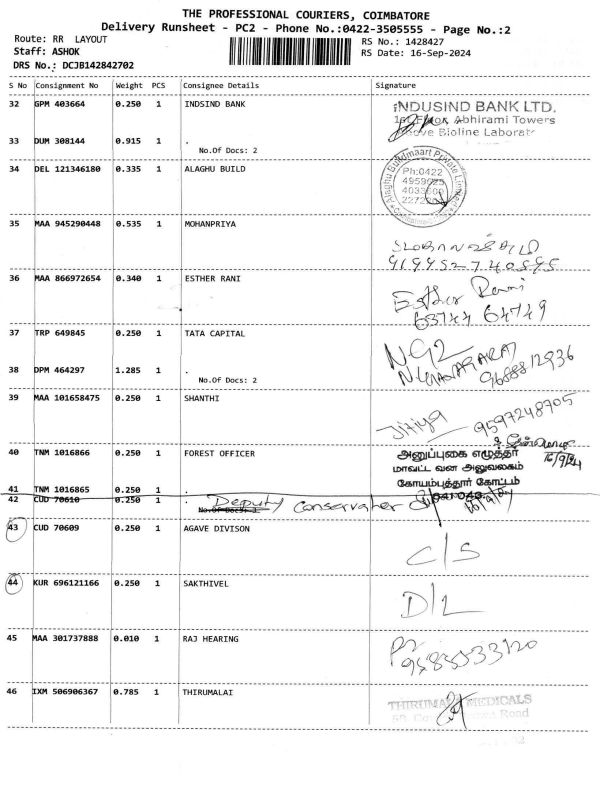 THE PROFESSIONAL COURIERS, COIMBATORE
Delivery Runsheet - PC2 - Phone No.:0422-3505555 - Page No.:2
Route: RR LAYOUT
RS No.: 1428427
Staff: ASHOK
RS Date: 16-Sep-2024
DRS No.: DCJB142842702
S No Consignment No Weight PCS Consignee Details Signature
32 GPM 403664 0.250 1 INDSIND BANK
INDUSIND BANK LTD.
Abhirami Towers
Bioline
33 DUM 308144 0.915 1 .
No.Of Docs: 2
34 DEL 121346180 0.335 1 ALAGHU BUILD
Alaghu Buildmaart Private Limited
Ph:0422
35 MAA 945290448 0.535 1 MOHANPRIYA
36 MAA 866972654 0.340 1 ESTHER RANI
Esther Rani
63744 64749
37 TRP 649845 0.250 1 TATA CAPITAL
38 DPM 464297 1.285 1 .
No.Of Docs: 2
39 MAA 101658475 0.250 1 SHANTHI
9597248705
40 TNM 1016866 0.250 1 FOREST OFFICER
அனுப்புகை எழுத்தர்
16/9/24
மாவட்ட வன அலுவலகம்
கோயம்புத்தூர் கோட்டம்
41 TNM 1016865 0.250 1 .
42 CUD 70610 0.250 1 .
Deputy Conservater
43 CUD 70609 0.250 1 AGAVE DIVISON
C/S
44 KUR 696121166 0.250 1 SAKTHIVEL
D/L
45 MAA 301737888 0.010 1 RAJ HEARING
46 IXM 506906367 0.785 1 THIRUMALAI
MEDICALS
Road